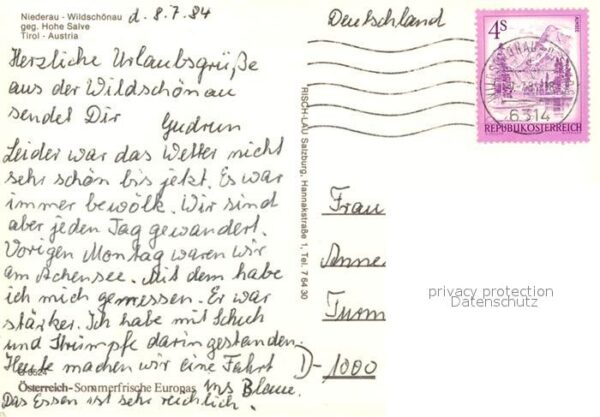 Niederau - Wildschönau
geg. Hohe Salve
Tirol - Austria
d. 8.7.84
Herzliche Urlaubsgrüße
aus der Wildschönau
sendet Dir
Gudrun
Leider war das Wetter nicht
sehr schön bis jetzt. Es war
immer bewölk. Wir sind
aber jeden Tag gewandert.
Vorigen Montag waren wir
am Achensee. Mit dem habe
ich mich gemessen. Er war
stärker. Ich habe mit Schuh
und Strümpfe darin gestanden.
Heute machen wir eine Fahrt
ins Blaue.
Das Essen ist sehr reichlich.
Österreich-Sommerfrische Europas
RISCH-LAU Salzburg, Hannakstraße 1, Tel. 7 64 30
Deutschland
4S
ALMSEE
6314
REPUBLIK ÖSTERREICH
Frau
Anne
D-1000
privacy protection
Datenschutz